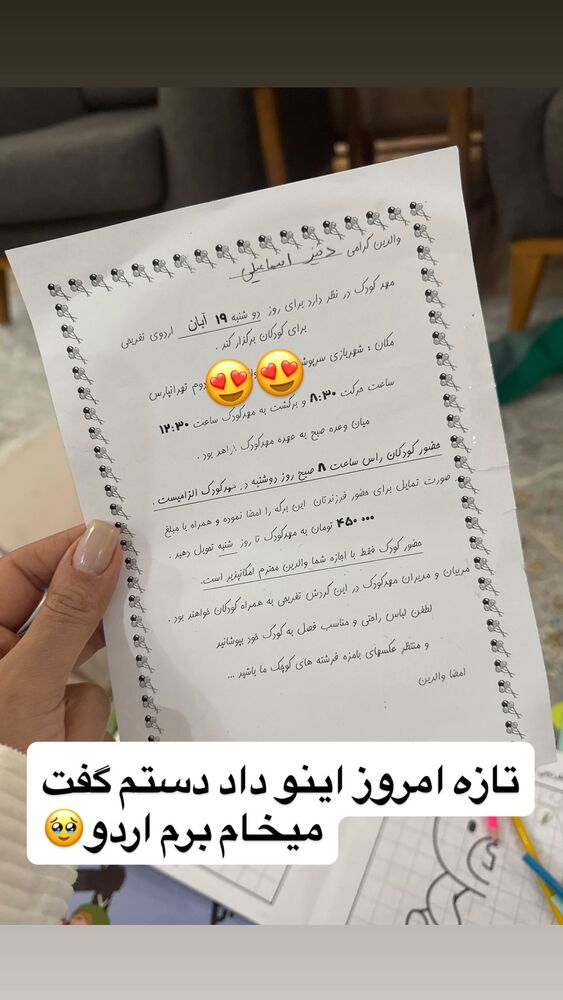 والدین گرامی
مهد کودک در نظر دارد برای روز دو شنبه ۱۹ آبان اردوی تفریحی
برای کودکان برگزار کند .
مکان : شهربازی سرپوش دوم تهرانپارس
ساعت حرکت ۸:۳۰ و برگشت به مهدکودک ساعت ۱۲:۳۰
میان وعده صبح به عهده مهدکودک خواهد بود .
حضور کودکان راس ساعت ۸ صبح روز دوشنبه در مهدکودک الزامیست .
صورت تمایل برای حضور فرزندتان این برگه را امضا نموده و همراه با مبلغ
۴۵۰۰۰۰ تومان به مهدکودک تا روز شنبه تحویل دهید .
حضور کودک فقط با اجازه شما والدین محترم امکانپذیر است.
مربیان و مدیران مهدکودک در این گردش تفریحی به همراه کودکان خواهند بود .
لطفن لباس راحتی و مناسب فصل به کودک خود بپوشانید
و منتظر عکسهای بامزه فرشته های کوچک ما باشید ...
امضا والدین
:
تازه امروز اینو داد دستم گفت
میخام برم اردو🥹